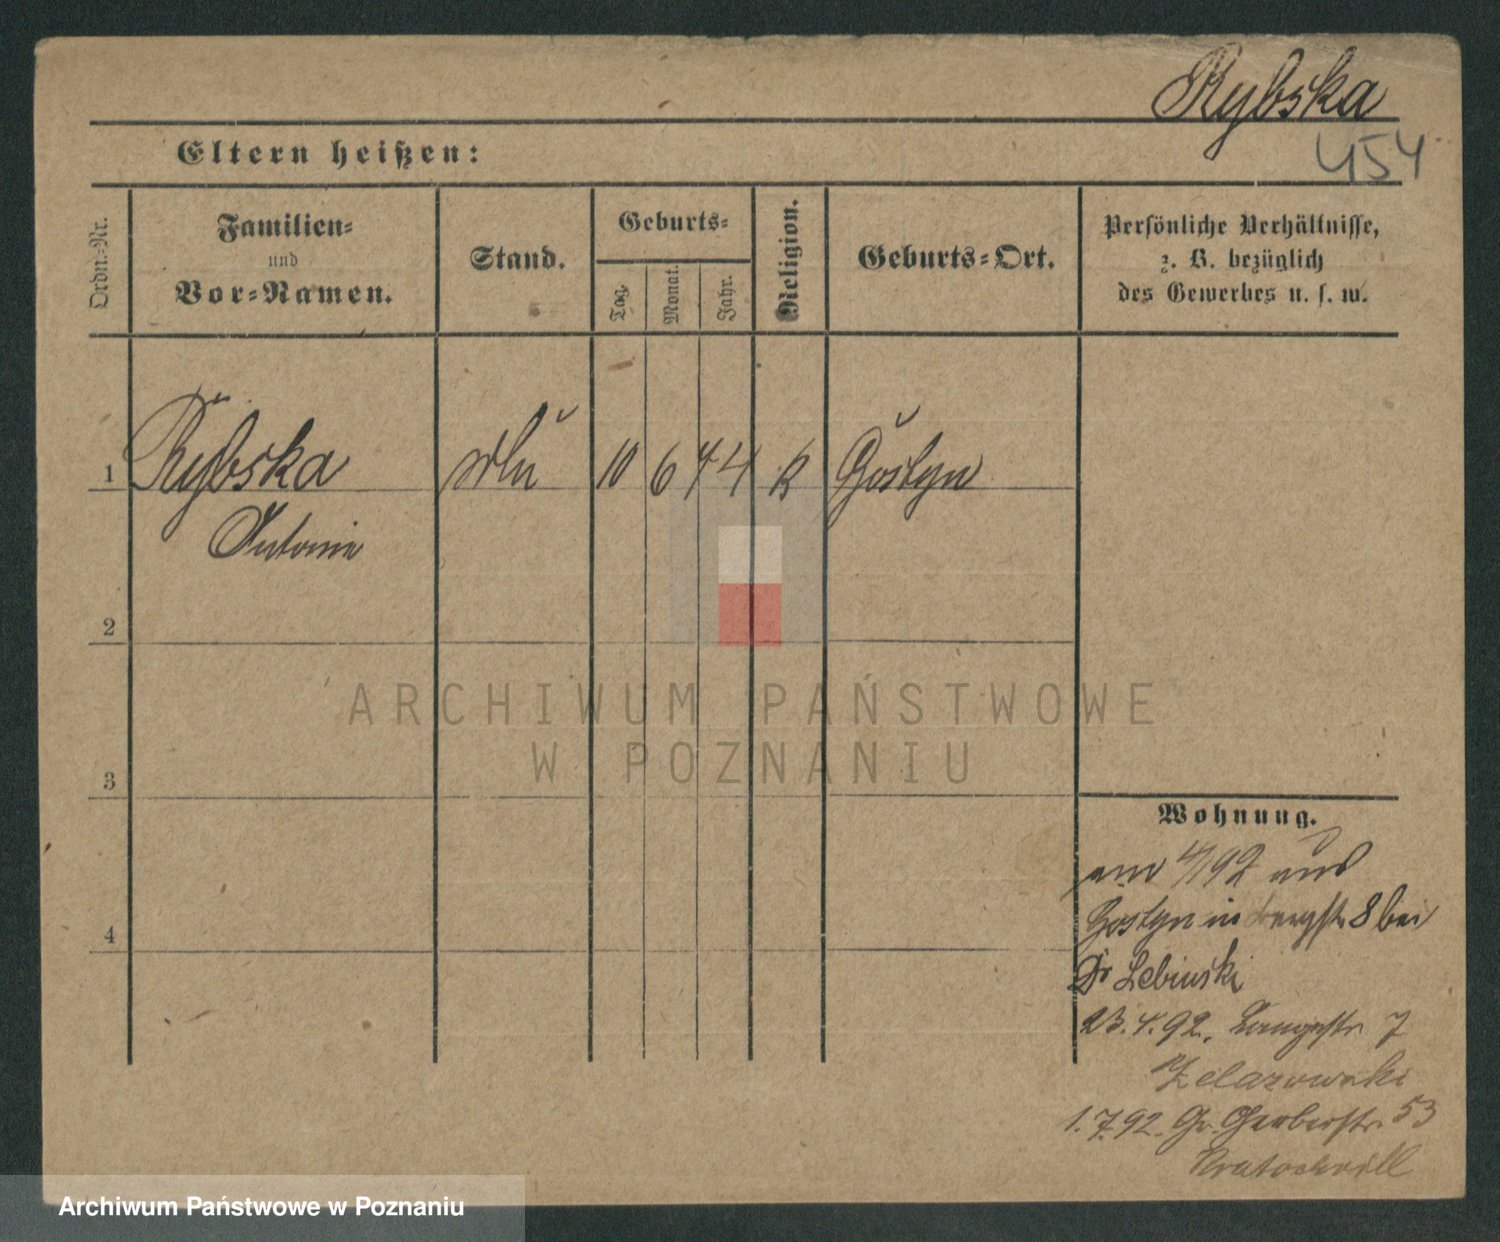 Rybska
454
Eltern heißen:
Ordn.-Nr.
Familien-
und
Vor-Namen.
Stand.
Geburts-
Tag.
Monat.
Jahr.
Religion.
Geburts-Ort.
Persönliche Verhältnisse,
z. B. bezüglich
des Gewerbes u. s. w.
1 Rybska 10 6 74 K Gostyn
Antonie
2
3
4
Wohnung.
4/92 aus
Gostyn in Bergstr 8 bei
Dr Lebinski
23.4.92. Langestr 7
Zelazowski
1.7.92. Gr. Gerberstr. 53
Kratochvill
ARCHIWUM PAŃSTWOWE
W POZNANIU
Archiwum Państwowe w Poznaniu